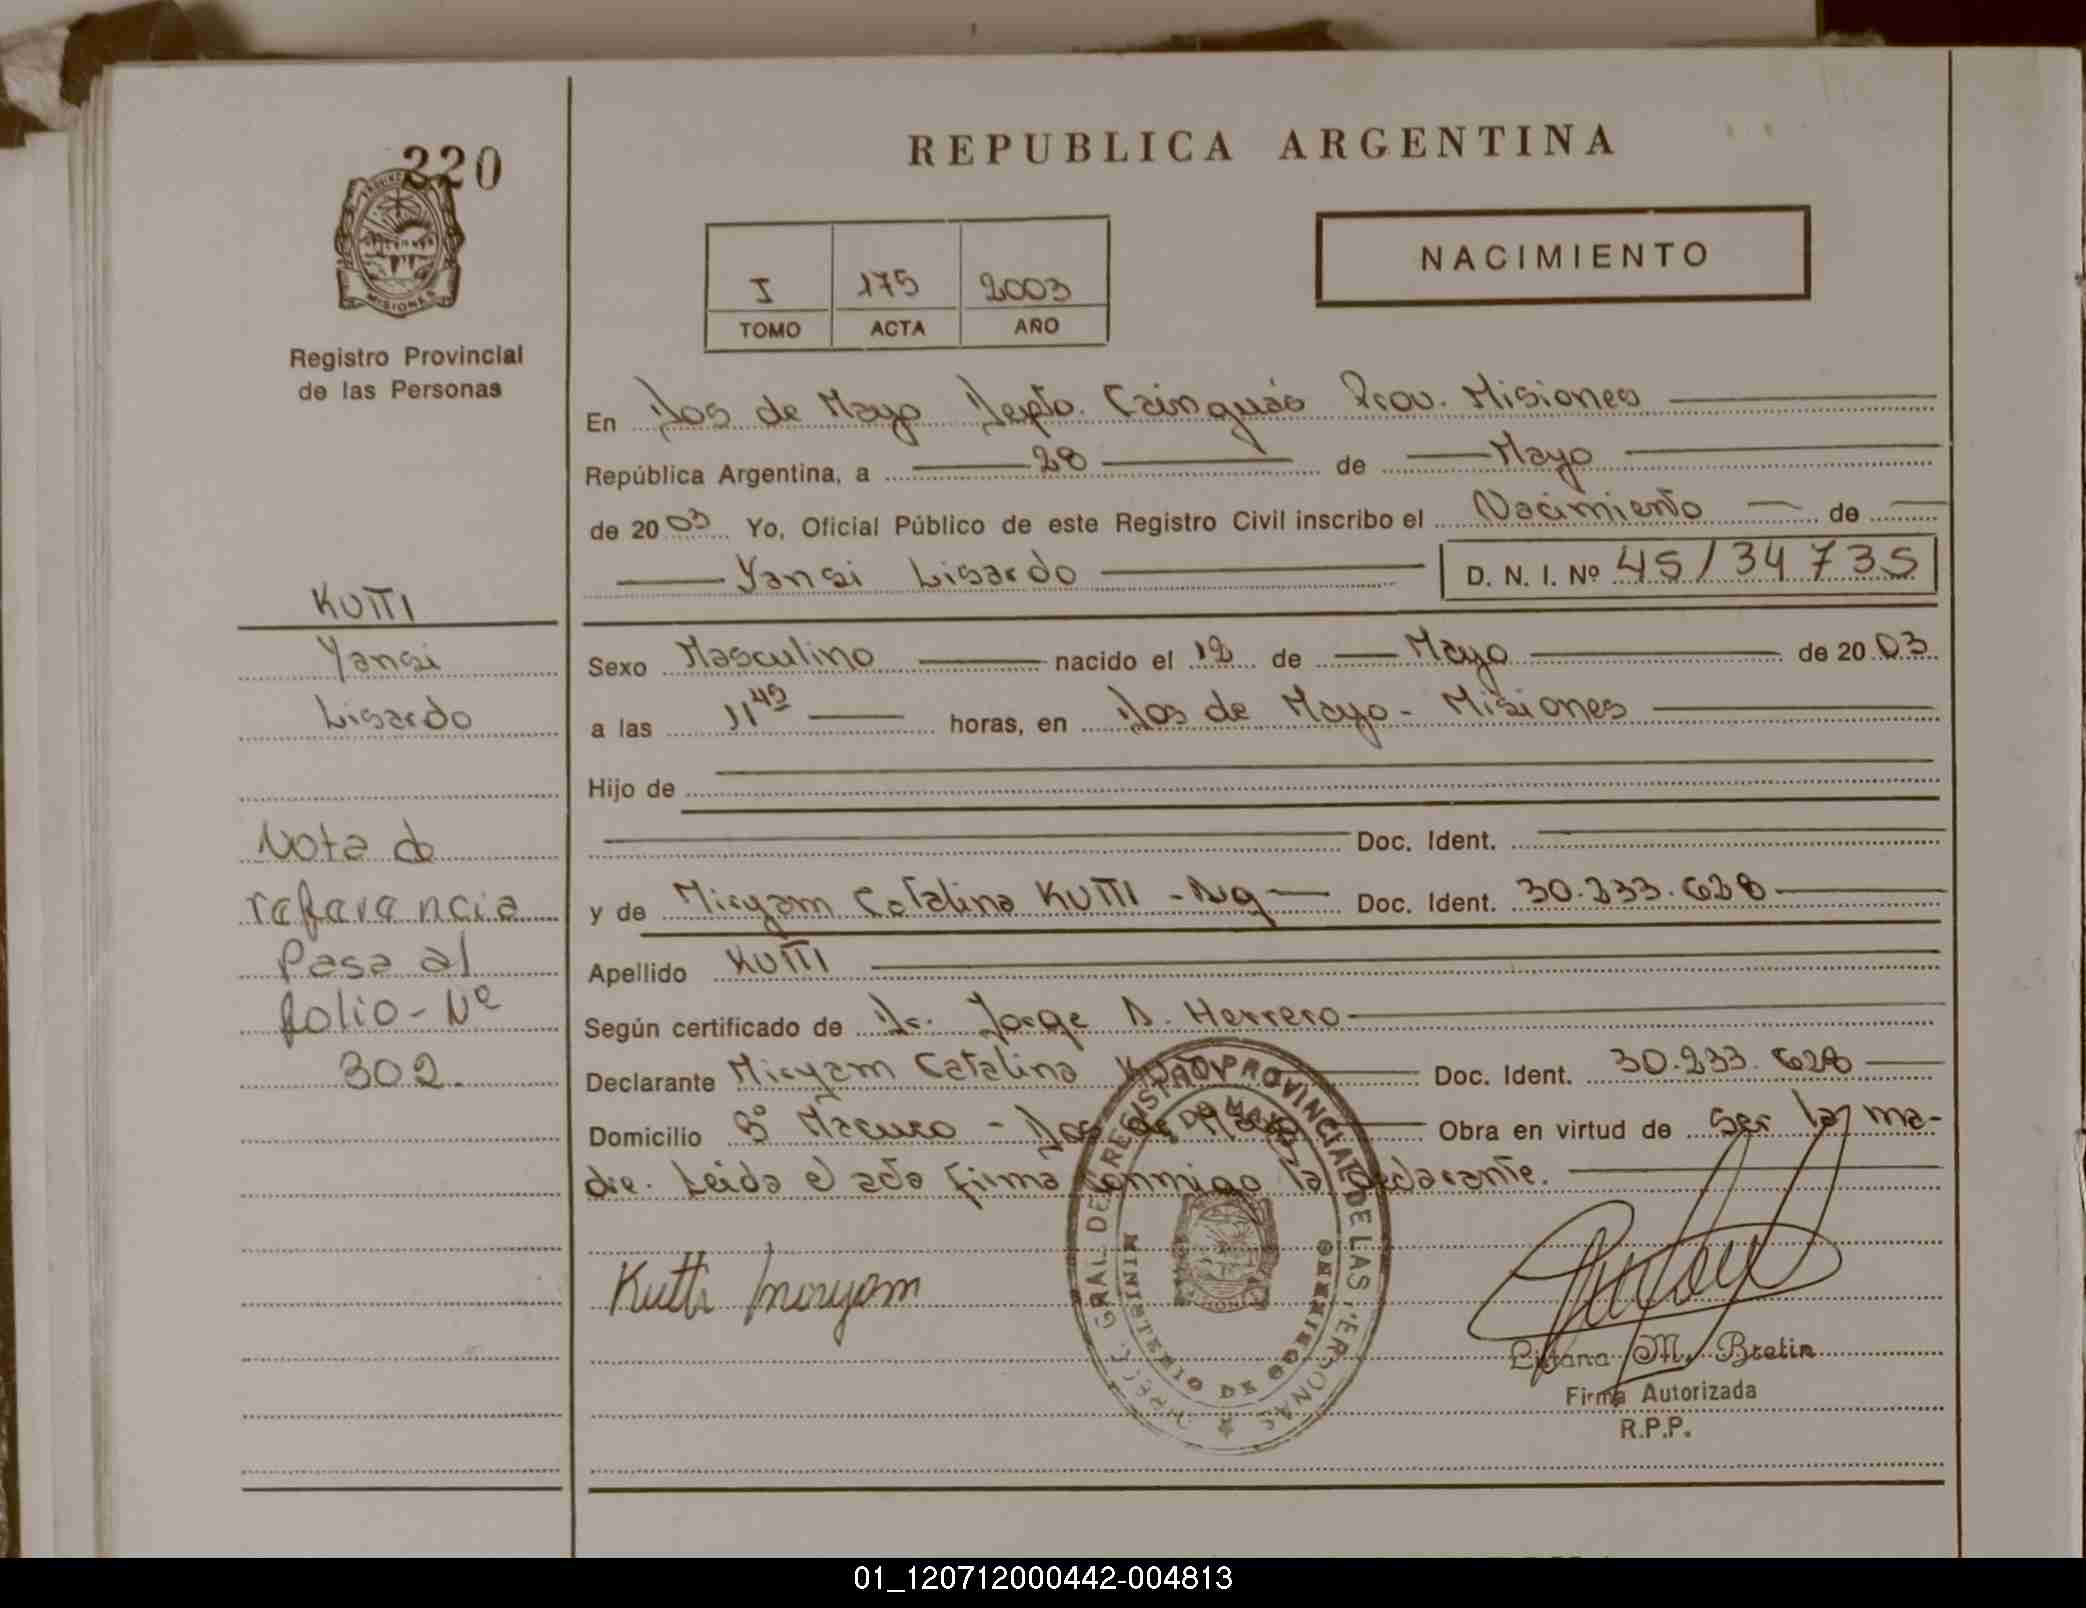 220
PROVINCIA
MISIONES
Registro Provincial
de las Personas
REPUBLICA ARGENTINA
NACIMIENTO
I 175 2003
TOMO ACTA AÑO
En Dos de Mayo Depto. Cainguás Prov. Misiones
República Argentina, a 28 de Mayo
de 2003 Yo, Oficial Público de este Registro Civil inscribo el Nacimiento de
Yansi Lisardo D. N. I. Nº 45134735
KUTTI
Yansi
Lisardo
Nota de
referencia
Pasa al
folio - Nº
302.
Sexo Masculino nacido el 12 de Mayo de 2003
a las 11 45 horas, en Dos de Mayo - Misiones
Hijo de
Doc. Ident.
y de Miryam Catalina KUTTI - Arg Doc. Ident. 30.233.628
Apellido KUTTI
Según certificado de Dr. Jorge D. Herrero
Declarante Miryam Catalina KUTTI Doc. Ident. 30.233.628
Domicilio Bº Macuco - Dos de Mayo Obra en virtud de ser la ma-
dre. Leida el acta firma conmigo la declarante.
Kutti Miryam
GRAL. DEL REGISTRO PROVINCIAL DE LAS PERSONAS
DOS DE MAYO
MINISTERIO DE GOBIERNO
Liliana M. Bretin
Firma Autorizada
R.P.P.
01_120712000442-004813